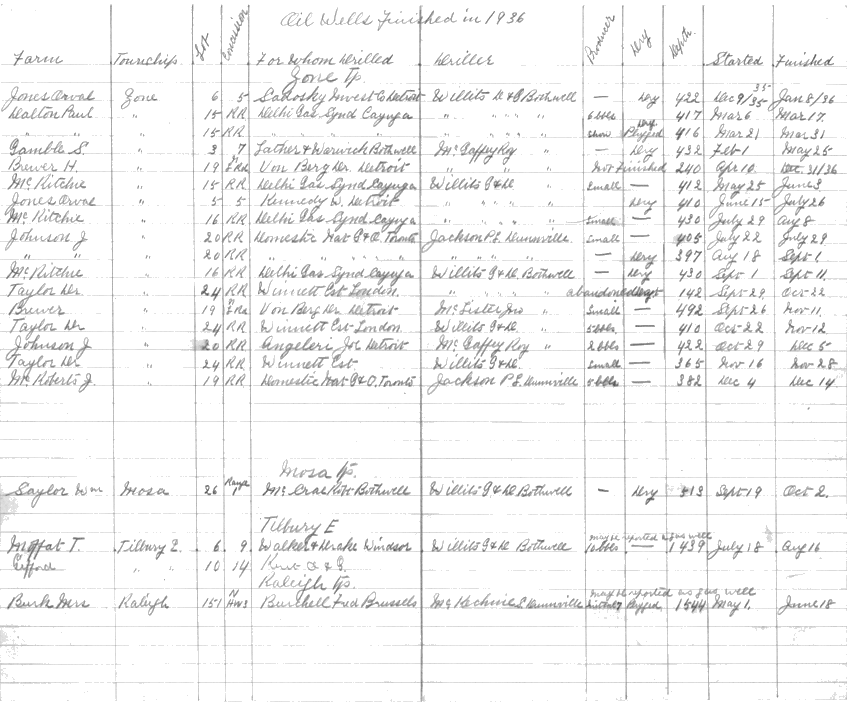 Oil Wells Finished in 1936
Farm Township Lot Concession For Whom Drilled Driller Producer Dry Depth Started Finished
Zone Tp.
Jones Orval Zone 6 5 Sadosky Invest Co Detroit Willits D & G Bothwell — Dry 422 Dec 9/35 Jan 8/36
Dalton Paul " 15 RR Delhi Gas Synd Cayuga " " " " 6 bbls — 417 Mar 6 Mar 17.
" " " 15 RR " " " " " " " " Dry Plugged 416 Mar 21 Mar 31
Gamble S. " 3 7 Lather & Warwick Bothwell McGaffey Roy " — Dry 432 Feb 1 May 25
Brewer H. " 19 Von Berg Dr. Detroit " " " Not Finished 240 Apr 10 Dec. 31/36
McRitchie " 15 RR Delhi Gas Synd Cayuga Willits G & D. " Small — 412 May 25 June 3
Jones Orval " 5 5 Kennedy W. Detroit " " " Dry 410 June 15 July 26
McRitchie " 16 RR Delhi Gas Synd Cayuga " " " Small — 430 July 29 Aug 8
Johnson J " 20 RR Domestic Nat G & O. Toronto Jackson P.E. Dunnville Small — 405 July 22 July 29
" " " 20 RR " " " " " " " " — Dry 397 Aug 18 Sept 1
McRitchie " 16 RR Delhi Gas Synd Cayuga Willits G & D. Bothwell — Dry 430 Sept 1 Sept 11.
Taylor Dr " 24 RR Winnett Est London. " " " " abandoned 142 Sept 29. Oct 22
Brewer " 19 Von Berg Dr Detroit McLister Jno " Small — 492 Sept 26 Nov 11.
Taylor Dr " 24 RR Winnett Est London Willits G & D. " 5 bbls — 410 Oct 22 Nov 12
Johnson J " 20 RR Angeleri Joe Detroit McGaffey Roy " 2 bbls — 422 Oct 29 Dec 5
Taylor Dr " 24 RR Winnett Est Willits G & D. Small — 365 Nov 16 Nov 28
McRoberts J. " 19 RR Domestic Nat G & O. Toronto Jackson P.E. Dunnville 5 bbls — 382 Dec 4 Dec 14
Mosa Tp.
Saylor Wm Mosa 26 Range 1 McCrae Robt Bothwell Willits G & D Bothwell — Dry 313 Sept 19 Oct 2.
Tilbury E
may be reported as gas well
Moffat T. Tilbury E. 6 9. Walker & Drake Windsor Willits G & D Bothwell 10 bbls — 1439 July 18 Aug 16
Gifford " " 10 14 Kent O & G.
Raleigh Tp.
may be reported as gas well
Burk Mrs Raleigh 151 Burchell Fred Brussels McKechnie S. Dunnville Plugged 1544 May 1. June 18